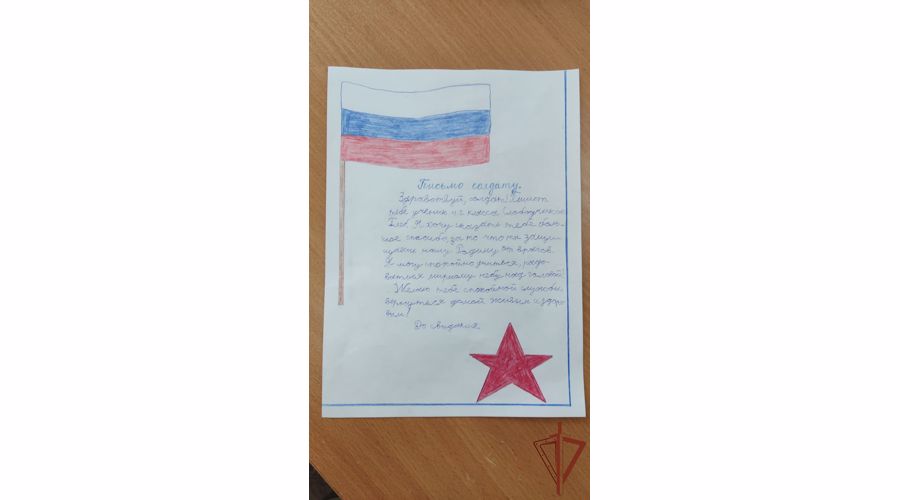 Письмо солдату.
Здравствуй, солдат! Пишет
тебе ученик 4 г класса
Глеб. Я хочу сказать тебе боль-
шое спасибо, за то что ты защи-
щаешь нашу Родину от врагов.
Я могу спокойно учиться, радо-
ваться мирному небу над головой!
Желаю тебе спокойной службы,
вернуться домой живым и здоро-
вым!
До свидания